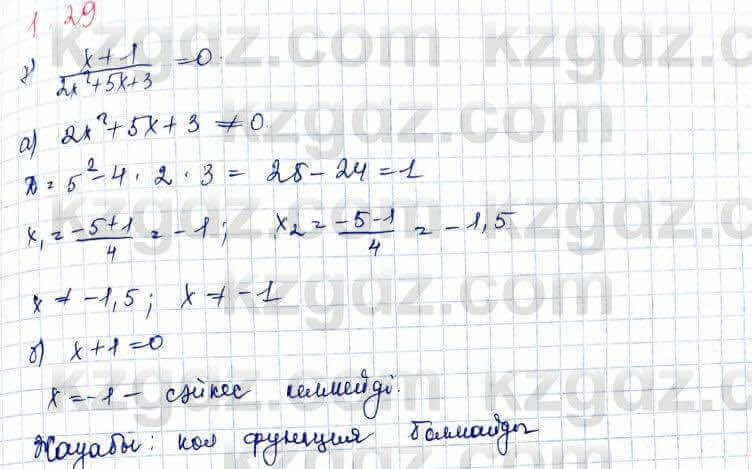 1.29
г) x+1/2x²+5x+3 =0.
а) 2x²+5x+3≠0.
D=5²-4·2·3=25-24=1
x₁=-5+1/4=-1; x₂=-5-1/4=-1,5
x≠-1,5; x≠-1
б) x+1=0
x=-1 - сәйкес келмейді.
Жауабы: нөл функция болмайды
kzgdz.com
kzgdz.com
kzgdz.com
kzgdz.com
kzgdz.com
kzgdz.com